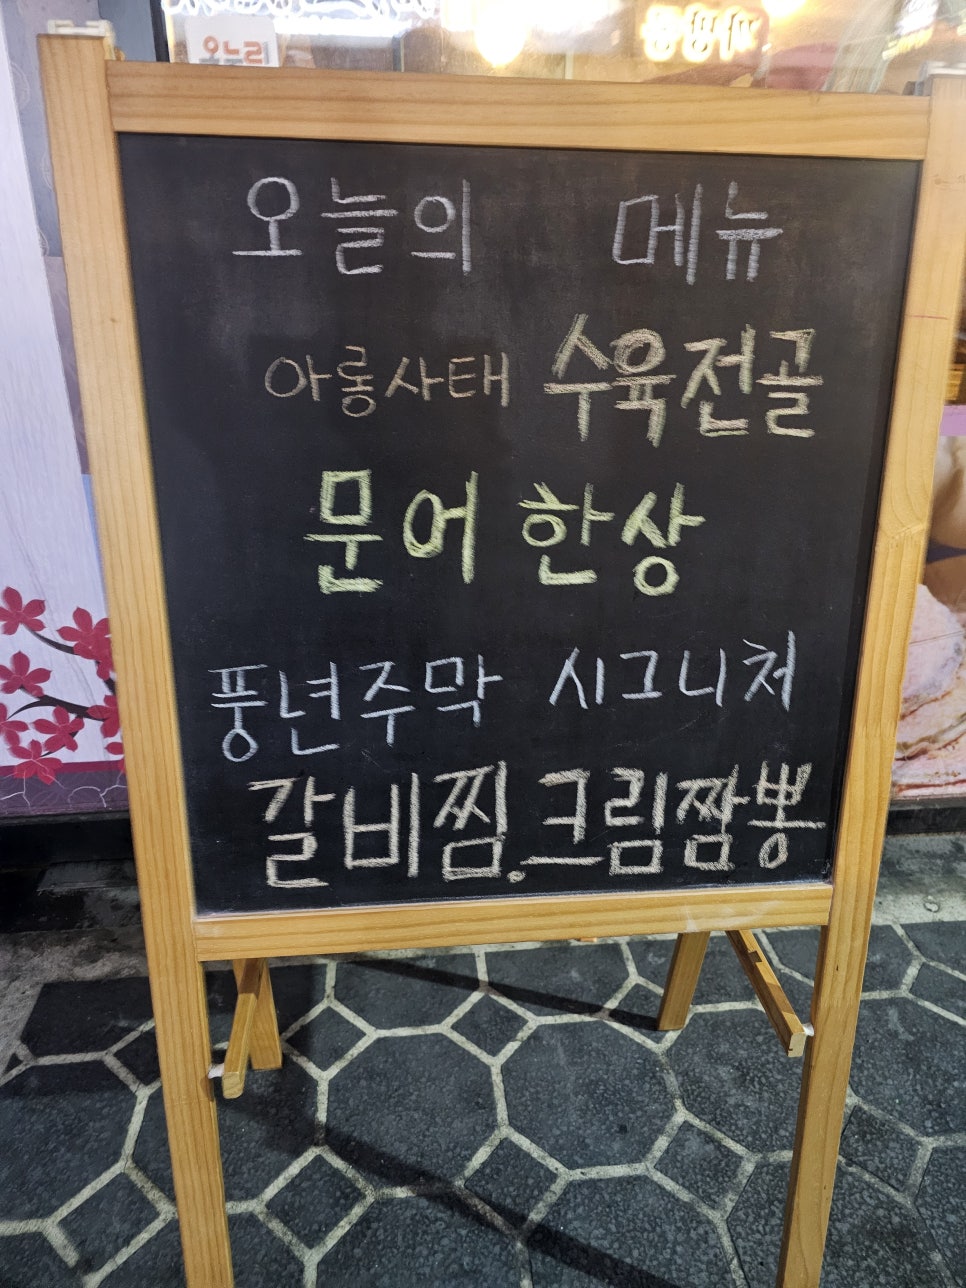 오누리
오늘의 메뉴
아롱사태 수육전골
문어 한상
풍년주막 시그니처
갈비찜. 크림짬뽕